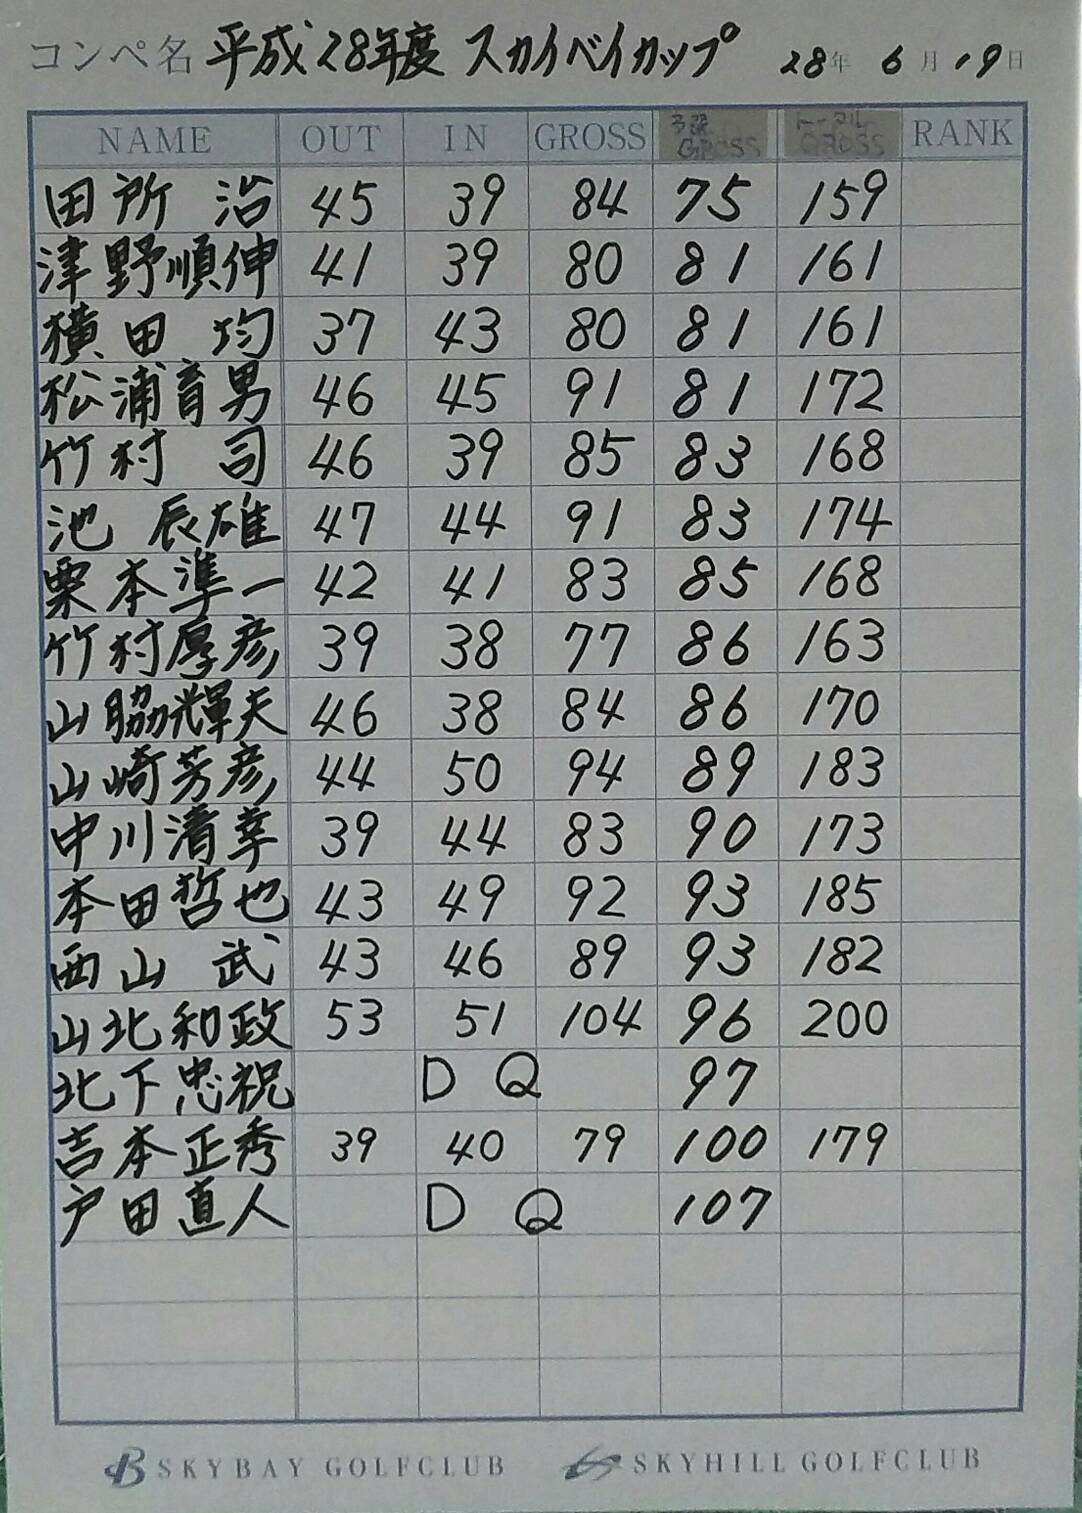 コンペ名 平成28年度 スカイベイカップ 28年 6月 19日
NAME OUT IN GROSS 予選GROSS トータルGROSS RANK
田所 治 45 39 84 75 159
津野順伸 41 39 80 81 161
横田 均 37 43 80 81 161
松浦育男 46 45 91 81 172
竹村 司 46 39 85 83 168
池 辰雄 47 44 91 83 174
栗本準一 42 41 83 85 168
竹村厚彦 39 38 77 86 163
山脇輝夫 46 38 84 86 170
山崎芳彦 44 50 94 89 183
中川清幸 39 44 83 90 173
本田哲也 43 49 92 93 185
西山 武 43 46 89 93 182
山北和政 53 51 104 96 200
北下忠祝 DQ 97
吉本正秀 39 40 79 100 179
戸田直人 DQ 107
SKYBAY GOLFCLUB SKYHILL GOLFCLUB